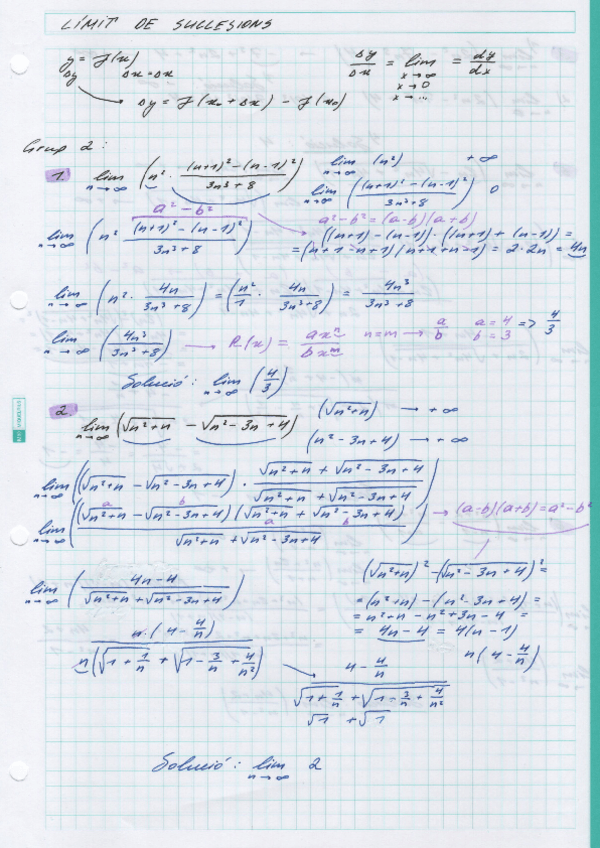 LÍMIT DE SUCCESIONS
y = f(x)
Δy Δx = Δx
Δy/Δx = lim x→∞ x→0 x→... = dy/dx
Δy = f(x₀ + Δx) - f(x₀)
Grup 2:
1. lim n→∞ (n² · ((n+1)² - (n-1)²)/(3n³+8))
lim n→∞ (n²) +∞
lim n→∞ (((n+1)² - (n-1)²)/(3n³+8)) 0
a² - b²
lim n→∞ (n² ((n+1)² - (n-1)²)/(3n³+8))
a² - b² = (a-b)(a+b)
((n+1) - (n-1)) · ((n+1) + (n-1)) =
= (n+1-n+1)(n+1+n-1) = 2·2n = 4n
lim n→∞ (n² · 4n/(3n³+8)) = (n²/1 · 4n/(3n³+8)) = 4n³/(3n³+8)
lim n→∞ (4n³/(3n³+8)) → R(x) = axⁿ/bxᵐ n=m → a/b a=4 b=3 => 4/3
Solució: lim n→∞ (4/3)
2. lim n→∞ (√n²+n - √n²-3n+4)
(√n²+n) → +∞
(n²-3n+4) → +∞
lim n→∞ ((√n²+n - √n²-3n+4) · (√n²+n + √n²-3n+4)/(√n²+n + √n²-3n+4))
a b
lim n→∞ ((√n²+n - √n²-3n+4)(√n²+n + √n²-3n+4)/(√n²+n + √n²-3n+4)) → (a-b)(a+b) = a²-b²
a b
(√n²+n)² - (√n²-3n+4)² =
lim n→∞ ((4n-4)/(√n²+n + √n²-3n+4))
= (n²+n) - (n²-3n+4) =
= n²+n - n²+3n-4 =
= 4n-4 = 4(n-1)
n(4 - 4/n)
n·(4 - 4/n)/n(√1+1/n + √1-3/n+4/n²)
(4 - 4/n)/(√1+1/n + √1-3/n+4/n²)
√1 + √1
Solució: lim n→∞ 2